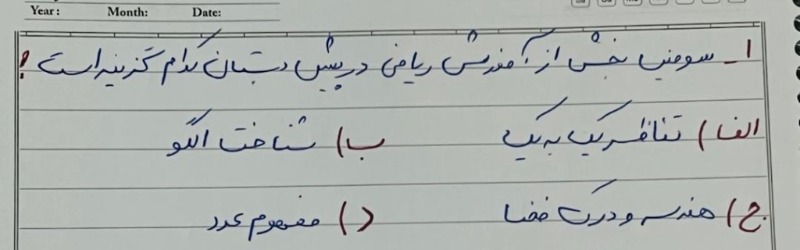 Year: Month: Date:
۱ـ سومین بخش از آموزش ریاضی در پیش دبستان کدام گزینه است؟
الف) تناظر یک به یک ب) شناخت الگو
ج) هندسه و درک فضا د) مفهوم عدد